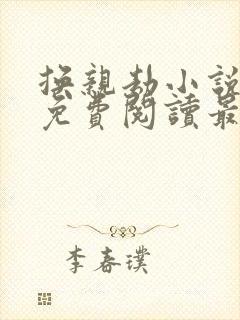 換親劫小說
免費閱讀最
李春璞